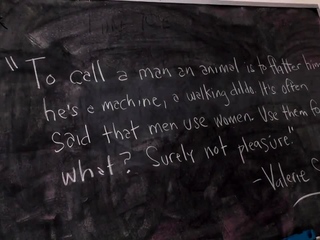 "To call a man an animal is to flatter him
he's a machine, a walking dildo. It's often
said that men use women. Use them fo
what? Surely not pleasure."
-Valerie S